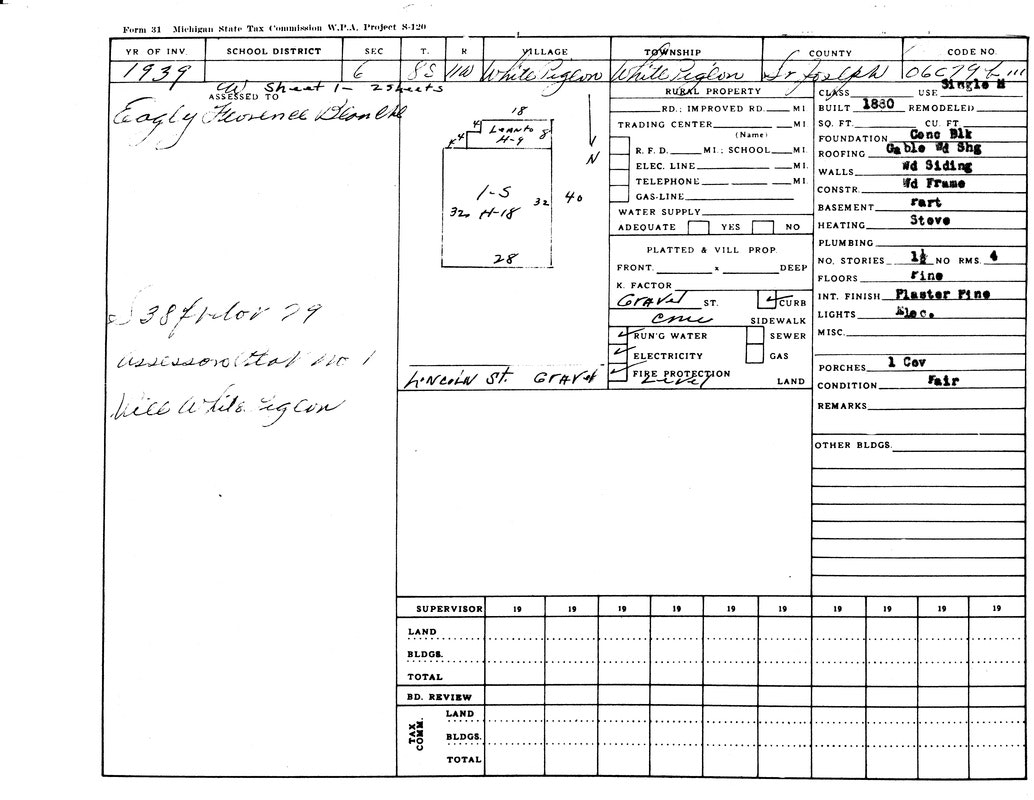 Form 31 Michigan State Tax Commission W.P.A. Project S-120
YR. OF INV. SCHOOL DISTRICT SEC T. R VILLAGE TOWNSHIP COUNTY CODE NO.
1939 6 8S 11W White Pigeon White Pigeon St Joseph
W Sheet 1- 2 Sheets
ASSESSED TO
Eagly Florence Blanche
S 38 ft of lot 29
Assessors Plat No 1
Vill White Pigeon
18
4
4
Leanto
H-9
8
1-S
H-18
32
32
40
28
N
LINCOLN ST. GRAVEL
RURAL PROPERTY
RD.; IMPROVED RD. MI.
TRADING CENTER MI.
(Name)
R. F. D. MI.; SCHOOL MI.
ELEC. LINE MI.
TELEPHONE MI.
GAS-LINE
WATER SUPPLY
ADEQUATE YES NO
PLATTED & VILL PROP.
FRONT. x DEEP
K. FACTOR
GRAVEL ST. CURB
SIDEWALK
RUN'G WATER SEWER
ELECTRICITY GAS
FIRE PROTECTION
Level LAND
CLASS USE Single H
BUILT 1880 REMODELED
SQ. FT. CU. FT.
FOUNDATION Conc Blk
ROOFING Gable Wd Shg
WALLS Wd Siding
CONSTR. Wd Frame
BASEMENT Part
HEATING Stove
PLUMBING
NO. STORIES 1½ NO RMS. 4
FLOORS Pine
INT. FINISH Plaster Pine
LIGHTS Elec.
MISC.
PORCHES 1 Cov
CONDITION Fair
REMARKS
OTHER BLDGS.
SUPERVISOR 19 19 19 19 19 19 19 19 19 19
LAND
BLDGS.
TOTAL
BD. REVIEW
TAX COMM.
LAND
BLDGS.
TOTAL